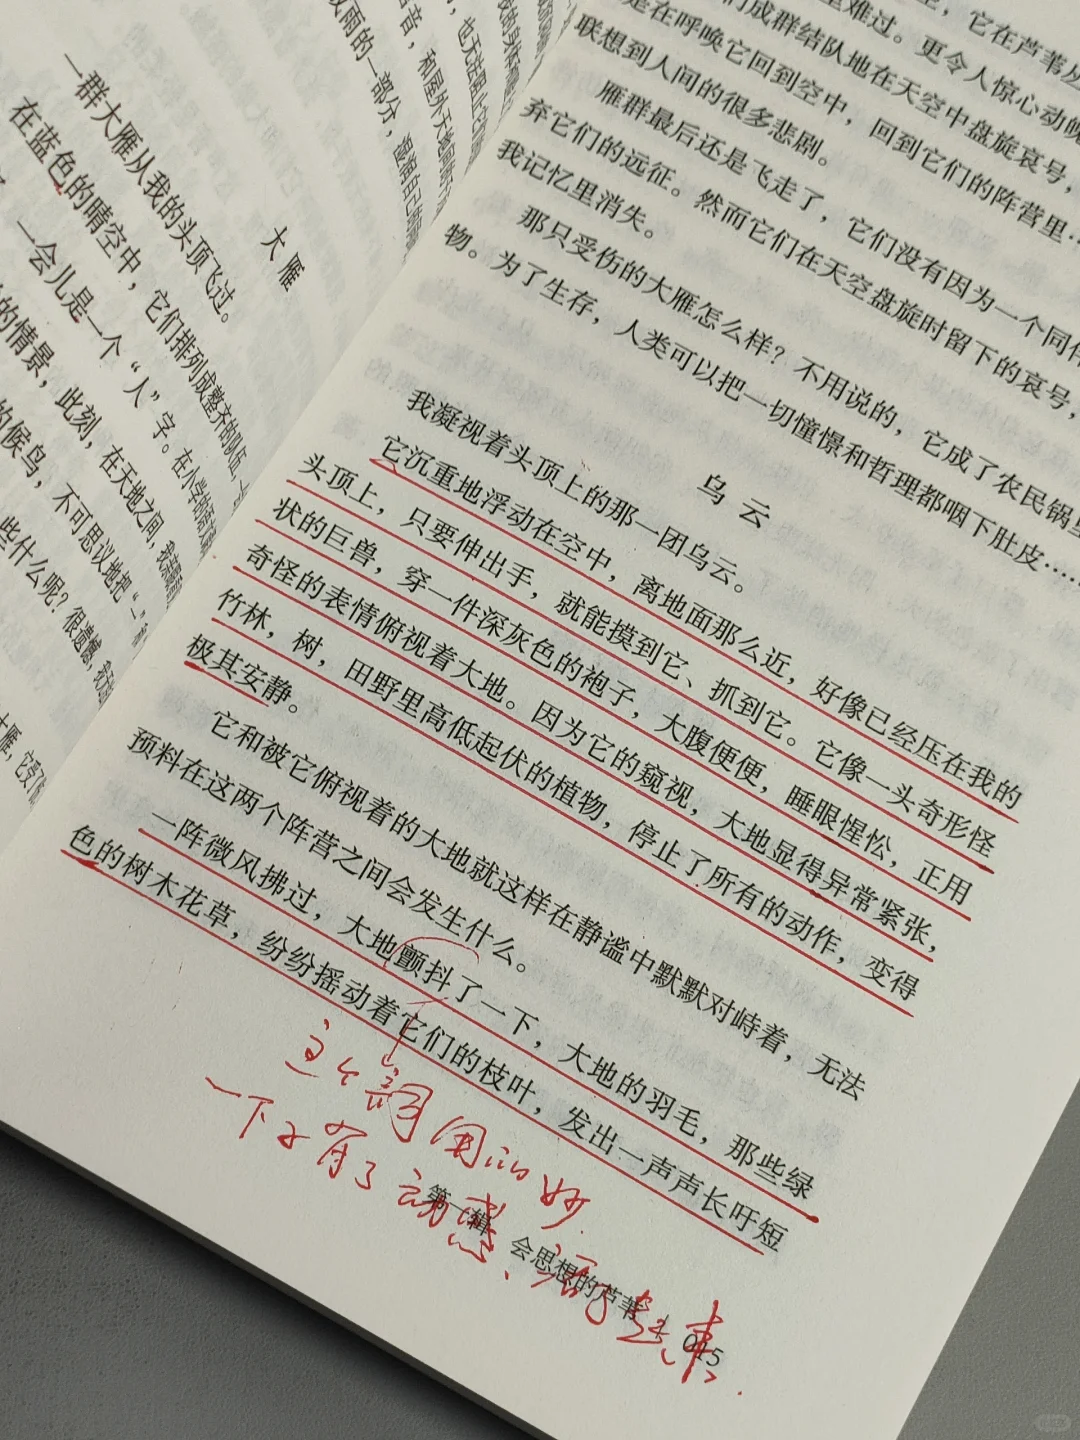 大雁
一群大雁从我的头顶飞过。
在蓝色的晴空中，它们排列成整齐的队伍，一
一会儿是一个“人”字。在小学的
的情景，此刻，在天地之间，
的候鸟，不可思议地把“一”
些什么呢？很遗憾，我
大雁，它受
雨的一部分，
音，和屋外天地间
，它在芦苇丛
们成群结队地在天空中盘旋哀号，
是在呼唤它回到空中，回到它们的阵营里…
联想到人间的很多悲剧。
雁群最后还是飞走了，它们没有因为一个同伴
弃它们的远征。然而它们在天空盘旋时留下的哀号，
我记忆里消失。
那只受伤的大雁怎么样？不用说的，它成了农民锅里
物。为了生存，人类可以把一切憧憬和哲理都咽下肚皮……
乌云
我凝视着头顶上的那一团乌云。
它沉重地浮动在空中，离地面那么近，好像已经压在我的
头顶上，只要伸出手，就能摸到它、抓到它。它像一头奇形怪
状的巨兽，穿一件深灰色的袍子，大腹便便，睡眼惺忪，正用
奇怪的表情俯视着大地。因为它的窥视，大地显得异常紧张，
竹林，树，田野里高低起伏的植物，停止了所有的动作，变得
极其安静。
它和被它俯视着的大地就这样在静谧中默默对峙着，无法
预料在这两个阵营之间会发生什么。
一阵微风拂过，大地颤抖了一下，大地的羽毛，那些绿
色的树木花草，纷纷摇动着它们的枝叶，发出一声声长吁短
这个词用的妙
一下子有了动感、活了起来.
第一辑 会思想的芦苇 / 015